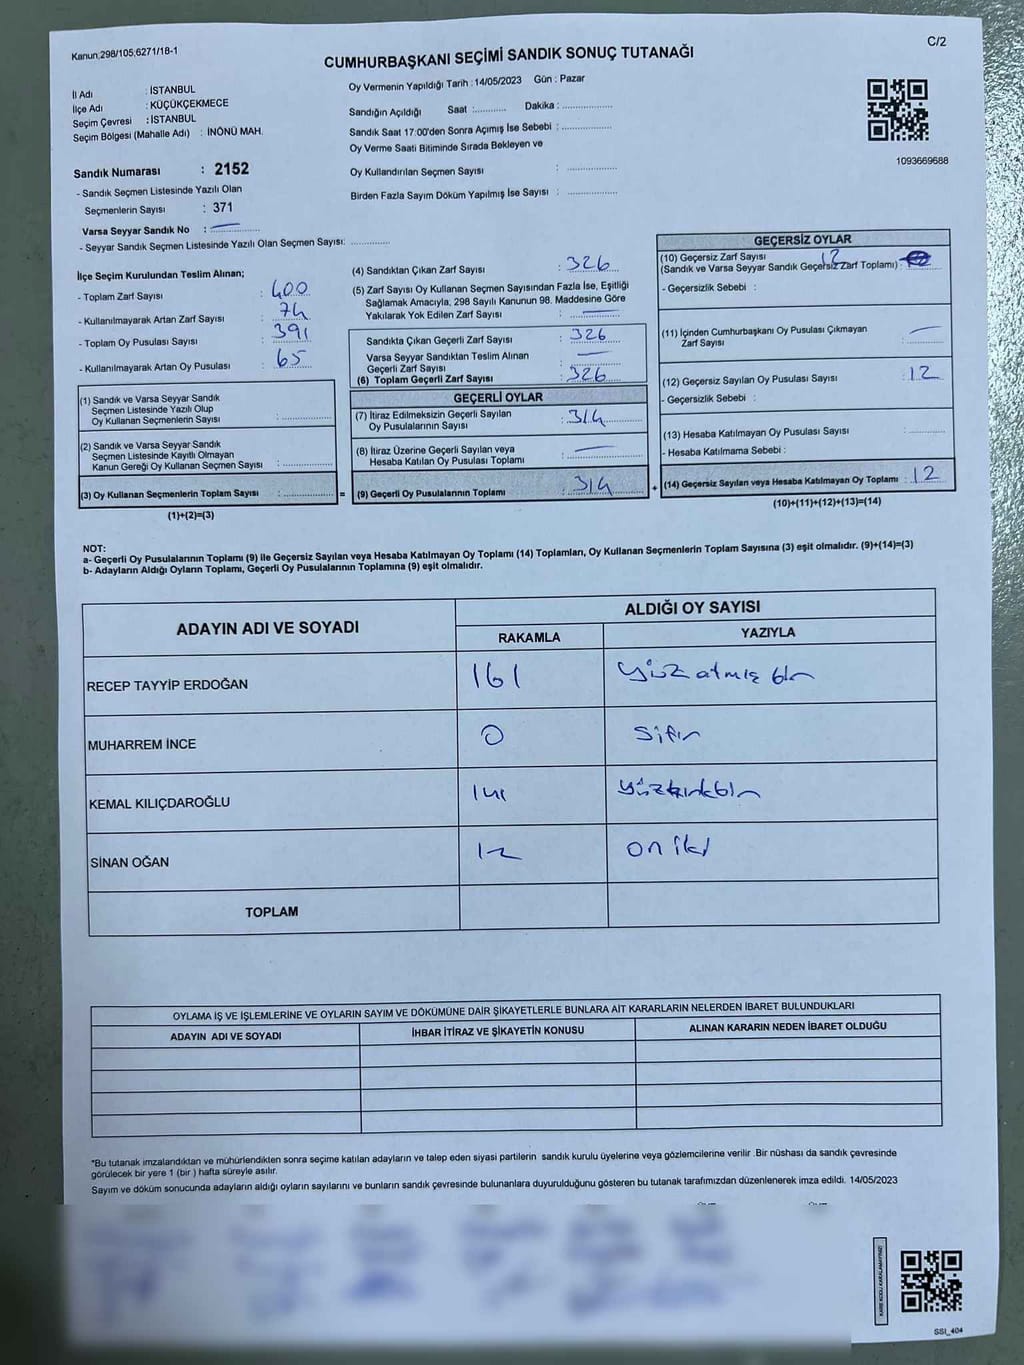 Kanun;298/105,6271/18-1
C/2
CUMHURBAŞKANI SEÇİMİ SANDIK SONUÇ TUTANAĞI
İl Adı : İSTANBUL
İlçe Adı : KÜÇÜKÇEKMECE
Seçim Çevresi : İSTANBUL
Seçim Bölgesi (Mahalle Adı) : İNÖNÜ MAH.
Sandık Numarası : 2152
- Sandık Seçmen Listesinde Yazılı Olan
Seçmenlerin Sayısı : 371
Varsa Seyyar Sandık No :
- Seyyar Sandık Seçmen Listesinde Yazılı Olan Seçmen Sayısı: ............
Oy Vermenin Yapıldığı Tarih : 14/05/2023 Gün : Pazar
Sandığın Açıldığı Saat :........... Dakika : .................
Sandık Saat 17:00'den Sonra Açımış İse Sebebi : .................
Oy Verme Saati Bitiminde Sırada Bekleyen ve
Oy Kullandırılan Seçmen Sayısı : .................
Birden Fazla Sayım Döküm Yapılmış İse Sayısı : .................
1093669688
İlçe Seçim Kurulundan Teslim Alınan;
- Toplam Zarf Sayısı : 400
- Kullanılmayarak Artan Zarf Sayısı : 74
- Toplam Oy Pusulası Sayısı : 391
- Kullanılmayarak Artan Oy Pusulası : 65
(1) Sandık ve Varsa Seyyar Sandık
Seçmen Listesinde Yazılı Olup
Oy Kullanan Seçmenlerin Sayısı : .............
(2) Sandık ve Varsa Seyyar Sandık
Seçmen Listesinde Kayıtlı Olmayan
Kanun Gereği Oy Kullanan Seçmen Sayısı : .............
(3) Oy Kullanan Seçmenlerin Toplam Sayısı : .............
(1)+(2)=(3)
=
(4) Sandıktan Çıkan Zarf Sayısı : 326
(5) Zarf Sayısı Oy Kullanan Seçmen Sayısından Fazla İse, Eşitliği
Sağlamak Amacıyla, 298 Sayılı Kanunun 98. Maddesine Göre
Yakılarak Yok Edilen Zarf Sayısı :
Sandıkta Çıkan Geçerli Zarf Sayısı : 326
Varsa Seyyar Sandıktan Teslim Alınan
Geçerli Zarf Sayısı :
(6) Toplam Geçerli Zarf Sayısı : 326
GEÇERLİ OYLAR
(7) İtiraz Edilmeksizin Geçerli Sayılan
Oy Pusulalarının Sayısı : 314
(8) İtiraz Üzerine Geçerli Sayılan veya
Hesaba Katılan Oy Pusulası Toplamı :
(9) Geçerli Oy Pusulalarının Toplamı : 314
+
GEÇERSİZ OYLAR
(10) Geçersiz Zarf Sayısı 12
(Sandık ve Varsa Seyyar Sandık Geçersiz Zarf Toplamı) :
- Geçersizlik Sebebi :
(11) İçinden Cumhurbaşkanı Oy Pusulası Çıkmayan
Zarf Sayısı :
(12) Geçersiz Sayılan Oy Pusulası Sayısı : 12
- Geçersizlik Sebebi :
(13) Hesaba Katılmayan Oy Pusulası Sayısı : ............
- Hesaba Katılmama Sebebi :
(14) Geçersiz Sayılan veya Hesaba Katılmayan Oy Toplamı : 12
(10)+(11)+(12)+(13)=(14)
NOT:
a- Geçerli Oy Pusulalarının Toplamı (9) ile Geçersiz Sayılan veya Hesaba Katılmayan Oy Toplamı (14) Toplamları, Oy Kullanan Seçmenlerin Toplam Sayısına (3) eşit olmalıdır. (9)+(14)=(3)
b- Adayların Aldığı Oyların Toplamı, Geçerli Oy Pusulalarının Toplamına (9) eşit olmalıdır.
ADAYIN ADI VE SOYADI
ALDIĞI OY SAYISI
RAKAMLA YAZIYLA
RECEP TAYYİP ERDOĞAN 161 Yüz atmış bir
MUHARREM İNCE 0 Sıfır
KEMAL KILIÇDAROĞLU 141 yüzkırkbir
SİNAN OĞAN 12 on iki
TOPLAM
OYLAMA İŞ VE İŞLEMLERİNE VE OYLARIN SAYIM VE DÖKÜMÜNE DAİR ŞİKAYETLERLE BUNLARA AİT KARARLARIN NELERDEN İBARET BULUNDUKLARI
ADAYIN ADI VE SOYADI İHBAR İTİRAZ VE ŞİKAYETİN KONUSU ALINAN KARARIN NEDEN İBARET OLDUĞU
*Bu tutanak imzalandıktan ve mühürlendikten sonra seçime katılan adayların ve talep eden siyasi partilerin sandık kurulu üyelerine veya gözlemcilerine verilir .Bir nüshası da sandık çevresinde
görülecek bir yere 1 (bir ) hafta süreyle asılır.
Sayım ve döküm sonucunda adayların aldığı oyların sayılarını ve bunların sandık çevresinde bulunanlara duyurulduğunu gösteren bu tutanak tarafımızdan düzenlenerek imza edildi. 14/05/2023
KARE KODU KARALAMAYINIZ!
SSI_404